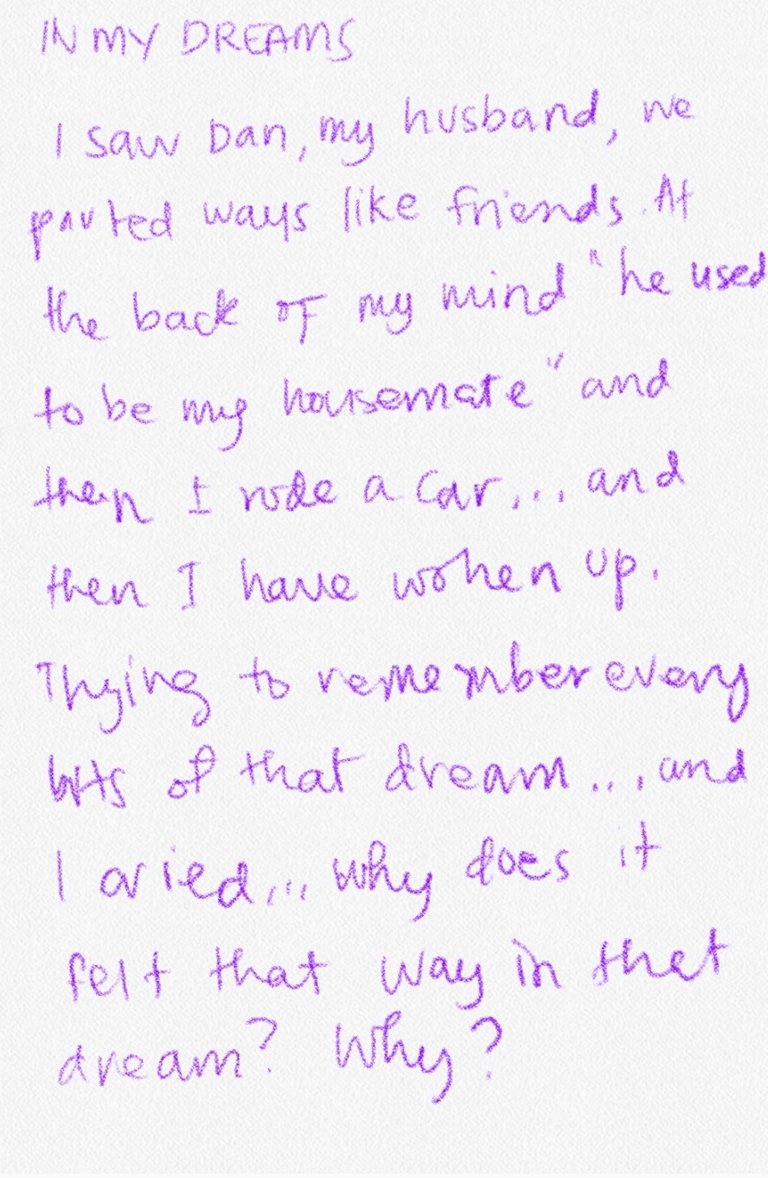 IN MY DREAMS
I saw Dan, my husband, we
parted ways like friends. At
the back of my mind "he used
to be my housemate" and
then I rode a car... and
then I have wohen up.
Trying to remember every
bits of that dream... and
I cried... why does it
felt that way in that
dream? Why?